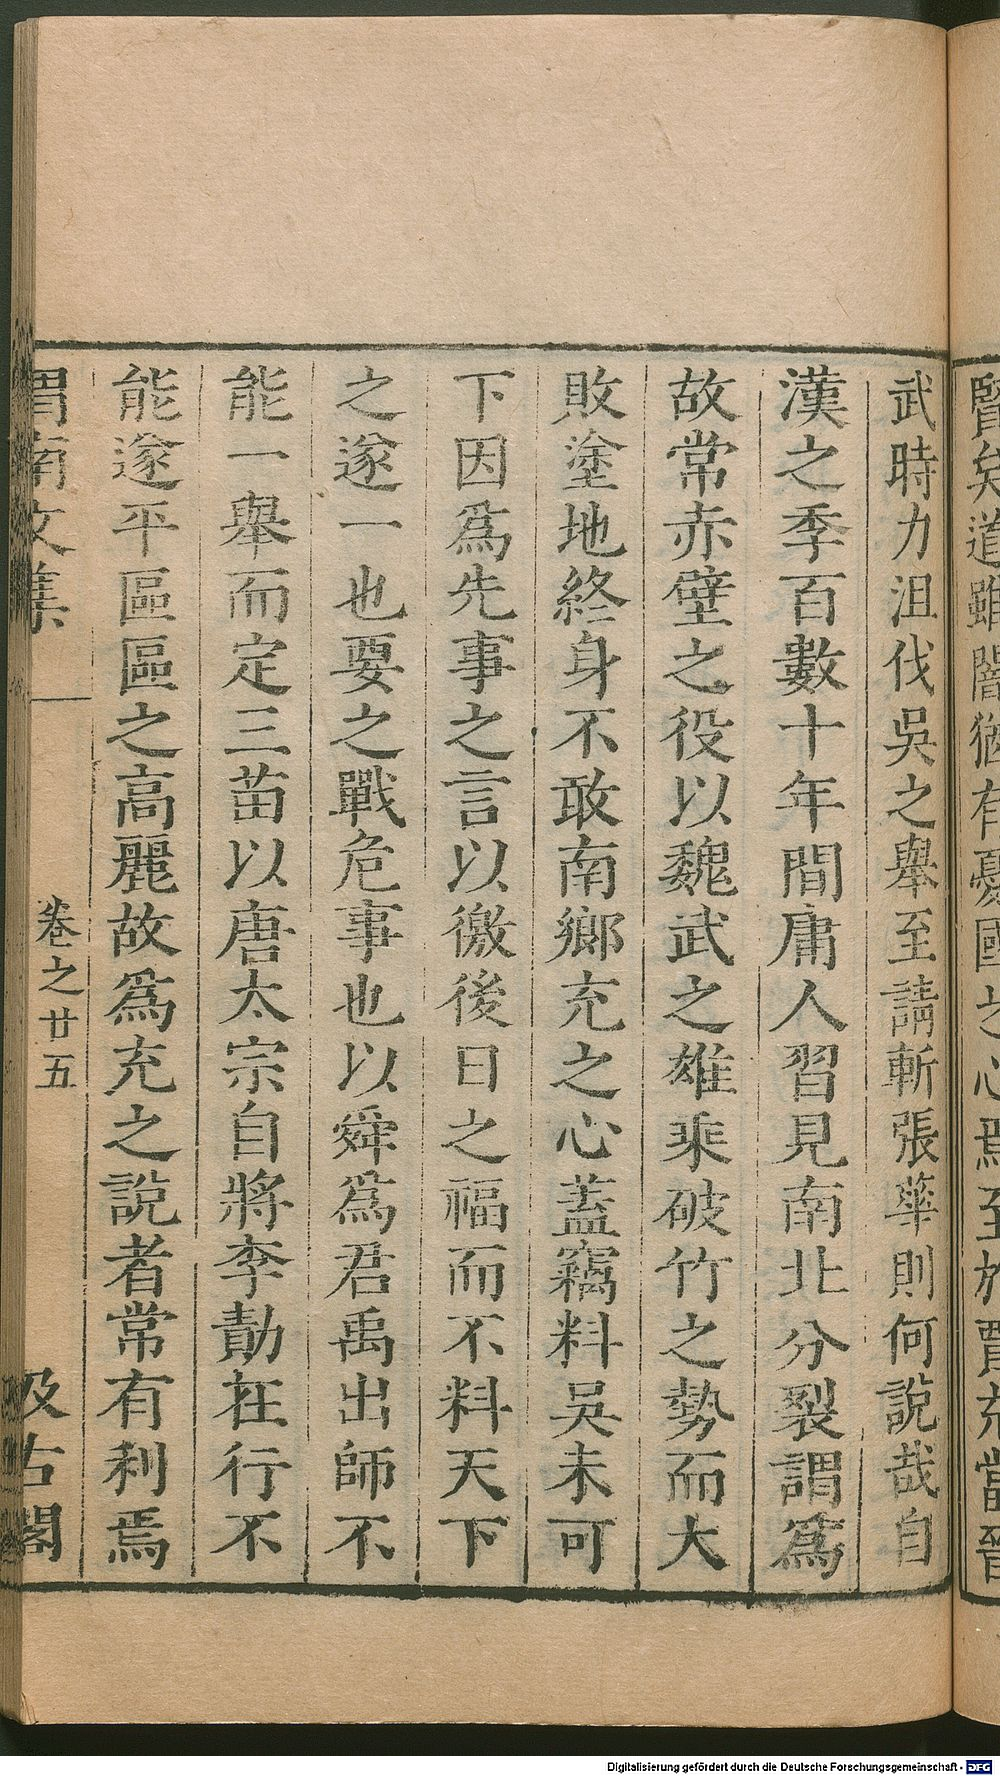 賢矣道雖闇猶有憂國之心焉至於賈充當晉
武時力沮伐吳之舉至請斬張華則何說哉自
漢之季百數十年間庸人習見南北分裂謂爲
故常赤壁之役以魏武之雄乘破竹之勢而大
敗塗地終身不敢南鄉充之心蓋竊料吳未可
下因爲先事之言以徼後日之福而不料天下
之遂一也要之戰危事也以舜爲君禹出師不
能一舉而定三苗以唐太宗自將李勣在行不
能遂平區區之高麗故爲充之說者常有利焉
渭南文集
卷之廿五
汲古閣
Digitalisierung gefördert durch die Deutsche Forschungsgemeinschaft - DFG